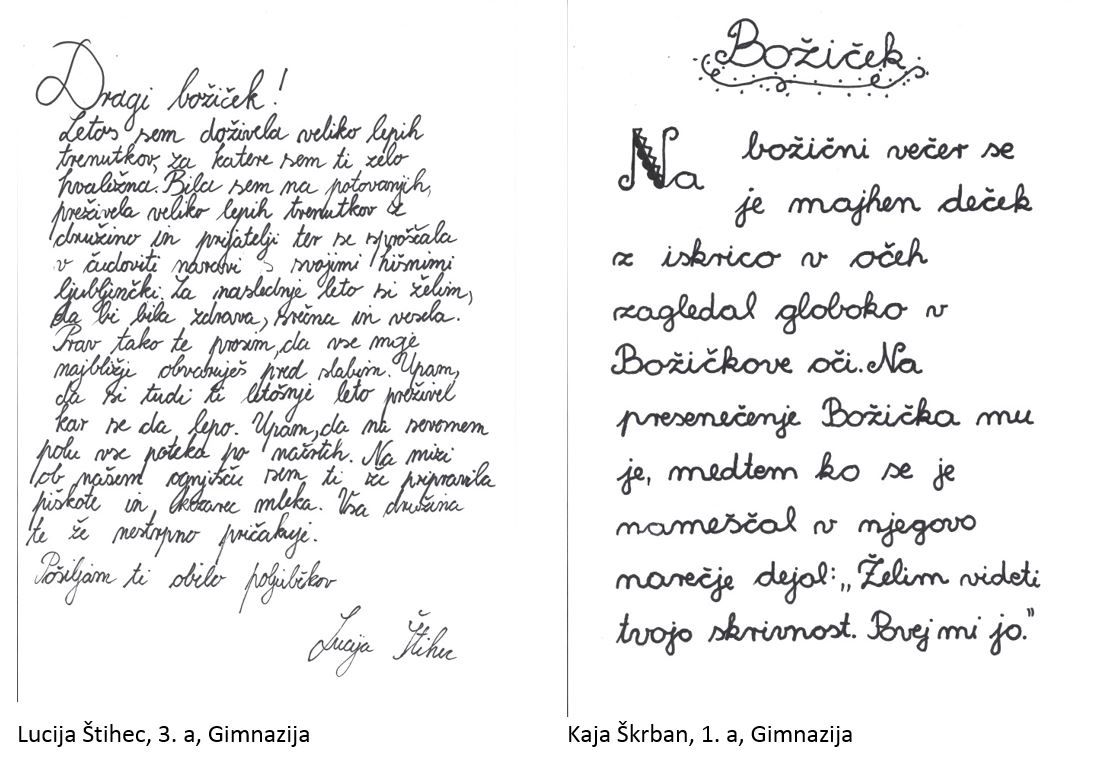 Dragi božiček!
Letos sem doživela veliko lepih
trenutkov, za katere sem ti zelo
hvaležna. Bila sem na potovanjih,
preživela veliko lepih trenutkov z
družino in prijatelji ter se sproščala
v čudoviti naravi s svojimi hišnimi
ljubljenčki. Za naslednje leto si želim,
da bi bila zdrava, srečna in vesela.
Prav tako te prosim, da vse moje
najbližje obvaruješ pred slabim. Upam,
da si tudi ti letošnje leto preživel
kar se da lepo. Upam, da na severnem
polu vse poteka po načrtih. Na mizi
ob našem ognjišču sem ti že pripravila
piškote in kozarec mleka. Vsa družina
te že nestrpno pričakuje.
Pošiljam ti obilo poljubčkov
Lucija Štihec
Lucija Štihec, 3. a, Gimnazija
Božiček
Na božični večer se
je majhen deček
z iskrico v očeh
zagledal globoko v
Božičkove oči. Na
presenečenje Božička mu
je, medtem ko se je
nameščal v njegovo
narečje dejal: „Želim videti
tvojo skrivnost. Povej mi jo.”
Kaja Škrban, 1. a, Gimnazija